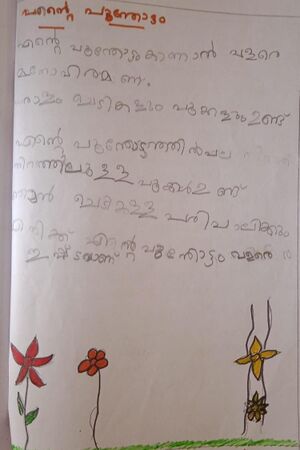 എന്റെ പൂന്തോട്ടം
എന്റെ പൂന്തോട്ടം കാണാൻ വളരെ
മനോഹരമാണ്.
ധാരാളം ചെടികളും പൂക്കളും ഉണ്ട്
എന്റെ പൂന്തോട്ടത്തിൽ പല
നിറത്തിലുള്ള പൂക്കൾ ഉണ്ട്
ഞാൻ ചെടികളെ പരിപാലിക്കും
എനിക്ക് എന്റെ പൂന്തോട്ടം വളരെ
ഇഷ്ടമാണ്